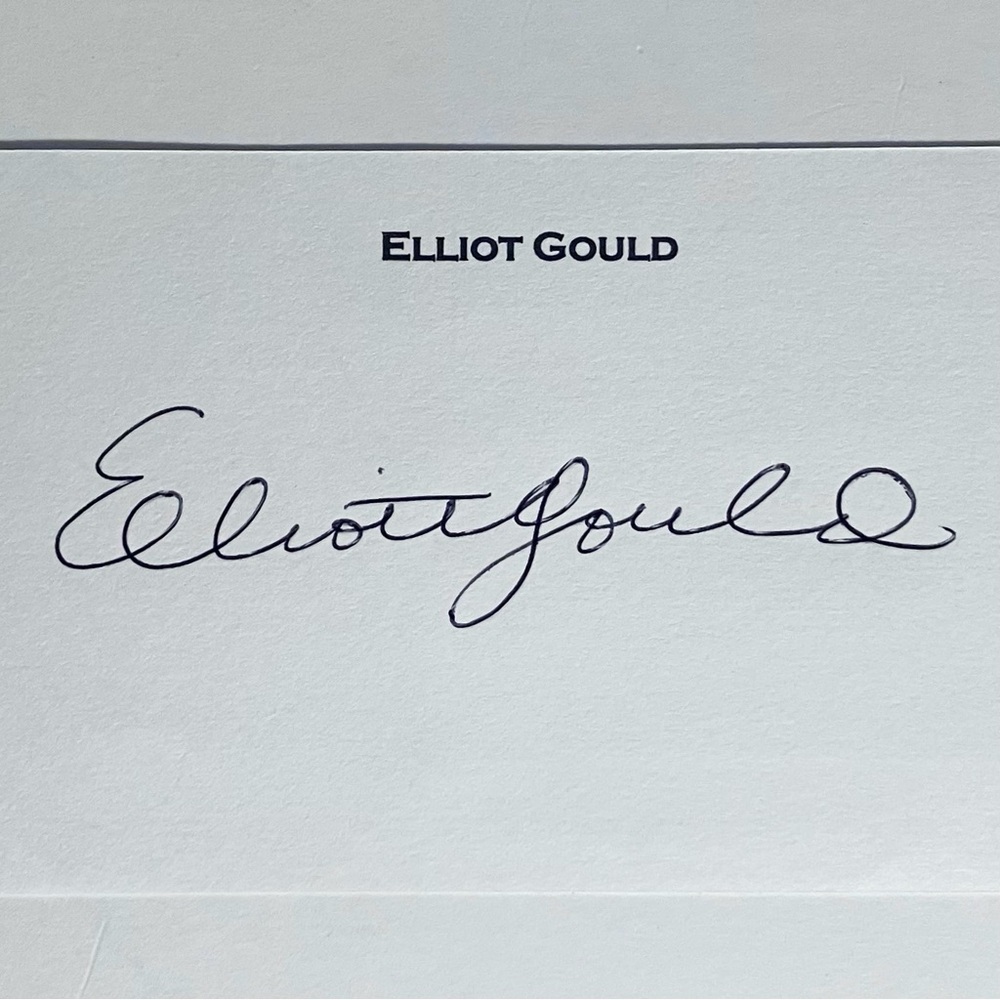 ELLIOT GOULD
Elliott Gould